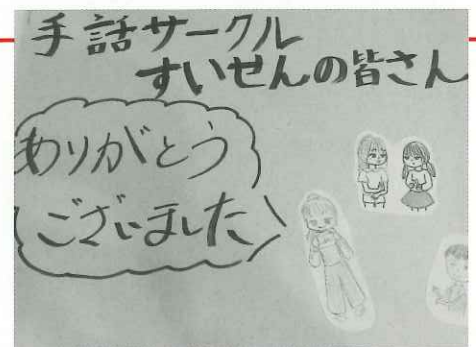 手話サークル
すいせんの皆さん
ありがとう
ございました